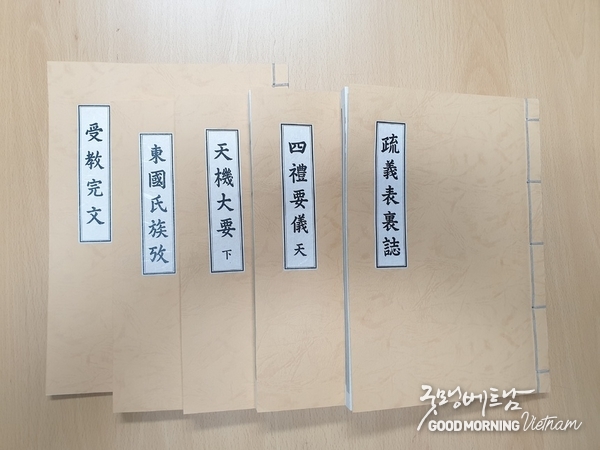 受教完文
東國氏族攷
天機大要 下
四禮要儀 天
疏義表裏誌
굿모닝베트남
GOOD MORNING Vietnam